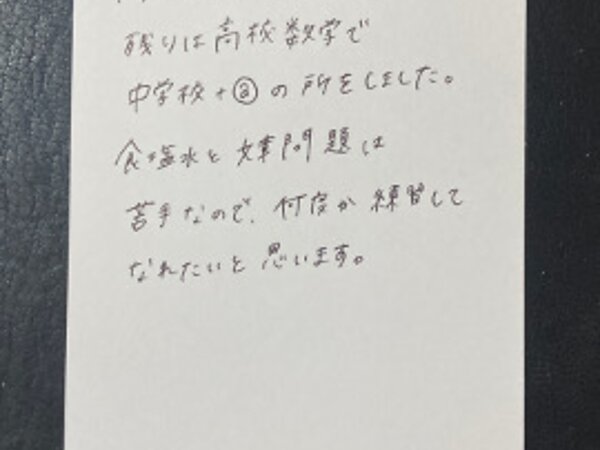 残りは高校数学で
中学校+ⓐの所をしました。
食塩水と 問題は
苦手なので、何度か練習して
なれたいと思います。